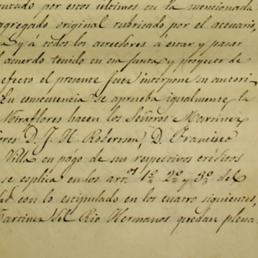 por estos últimos en la mencionada
agregado original rubricado por el actuario,
y á todos los acredores á estar y pasar
acuerdo tenido en su junta y proyecto de
efecto el presente fuer interpone su autori
En consecuencia se aprueba igualmente la
Miraflores hacen los Señores Martinez
D. J. H. Robertson, D. Francisco
Villa en págo de sus respectivos créditos
se esplica en los artos 1º 2º y 5º del
con lo estipulado en los cuatro siguientes,
Martinez Del Rio Hermanos quedan plena